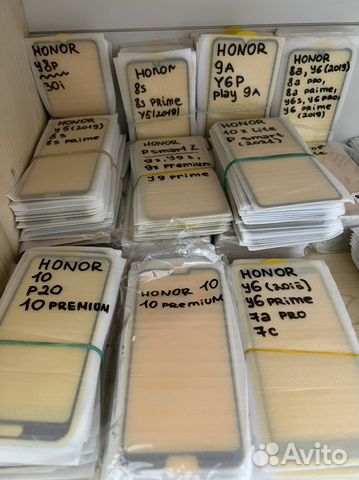 HONOR
y8p
30i
HONOR
8s
8s PRIME
Y5(2019)
HONOR
9A
Y6P
Play 9A
HONOR
8a, y6 (2019)
8a pro,
8a PRIME,
y6s, y6 PRO,
y6 PRIME (2019)
HONOR
y5 (2019)
8s
8s PRIME
HONOR
P smart Z
9x, y9s,
9x PREMIUM
y9 PRIME
HONOR
10 x Lite
P smart
(2021)
HONOR
10
P20
10 PREMIUM
HONOR 10
10 PREMIUM
HONOR
y6 (2018)
y6 PRIME
7a PRO
7c
Avito